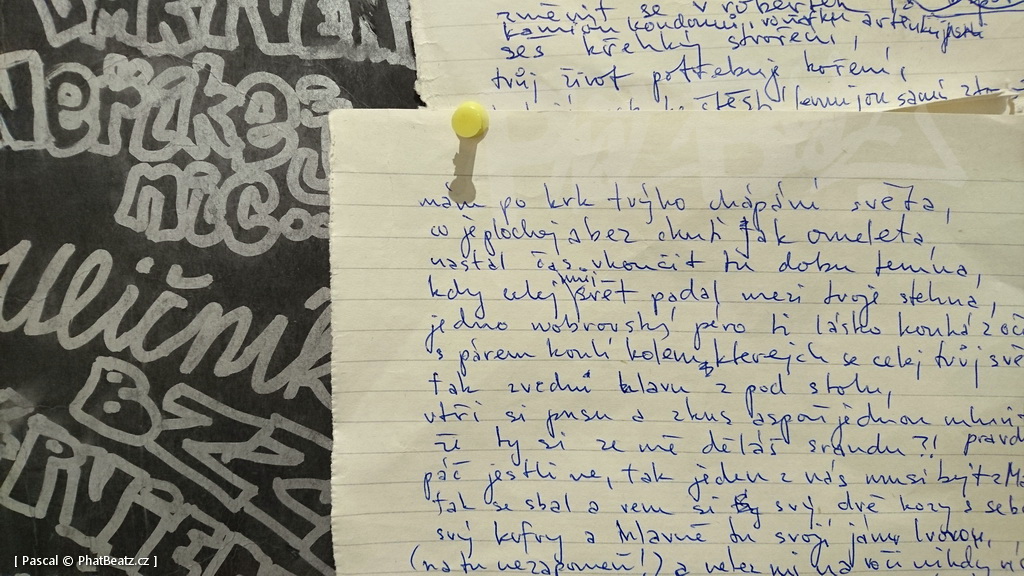 změnit se v
kamión kondomů,
seš křehký stvoření,
tvůj život potřebuje koření,
Neříkej
nic
Uličník
mám po krk tvýho chápání světa,
co je plochej a bez chuti jak omeleta
nastal čas ukončit tu dobu temna,
kdy celej můj svět padal mezi tvoje stehna,
jedno vobrovský péro ti lásko kouká z oč
s párem koulí kolem kterejch se celej tvůj svě
tak zvedni hlavu z pod stolu,
utři si pusu a zkus aspoň jednou mluvi
že ty si ze mě děláš srandu ?! pravd
páč jestli ne, tak jeden z nás musí bejt z Ma
tak se sbal a vem si svý dvě kozy s seb
svý kufry a hlavně tu svojí jámu lvovou,
(na tu nezapomeň!) a nelez mi na voči nikdy víc
[ Pascal © PhatBeatz.cz ]